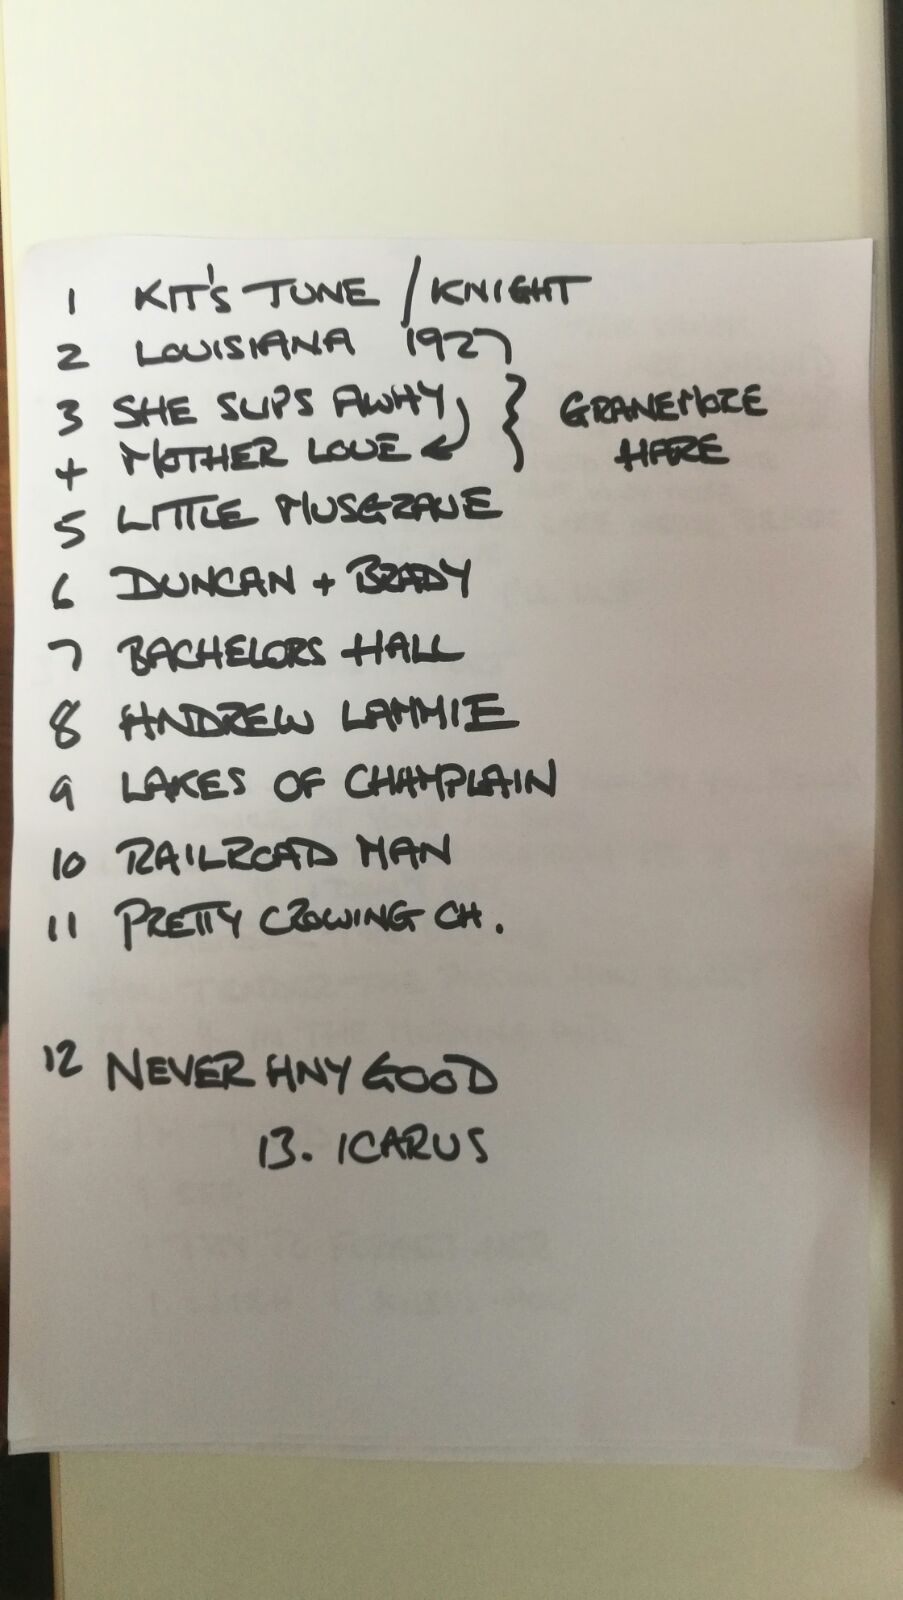 1 KIT'S TUNE / KNIGHT
2 LOUISIANA 1927
3 SHE SLIPS AWAY
4 MOTHER LOVE
} GRANEMORE
HARE
5 LITTLE MUSGRAVE
6 DUNCAN + BRADY
7 BACHELORS HALL
8 ANDREW LAMMIE
9 LAKES OF CHAMPLAIN
10 RAILROAD MAN
11 PRETTY CROWING CH.
12 NEVER ANY GOOD
13. ICARUS